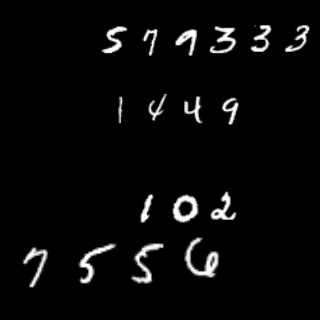 579333
1449
102
7556